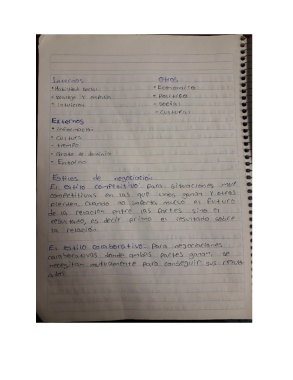 Internos
• Habilidad social
• Intuición
Otros
• Económico
• Político
• Social
• Cultural
Externos
• Información
• Cultura
• tiempo
• Grado o dominio
• Entorno
Estilos de negociación
El estilo competitivo para situaciones muy
competitivas en las que unos ganan y otros
pierden. Cuando no importa mucho el futuro
de la relación entre las partes sino el
resultado, es decir prima el resultado sobre
la relación.
El estilo colaborativo Para negociaciones
colaborativas donde ambas partes ganan, se
necesitan mutuamente para conseguir sus